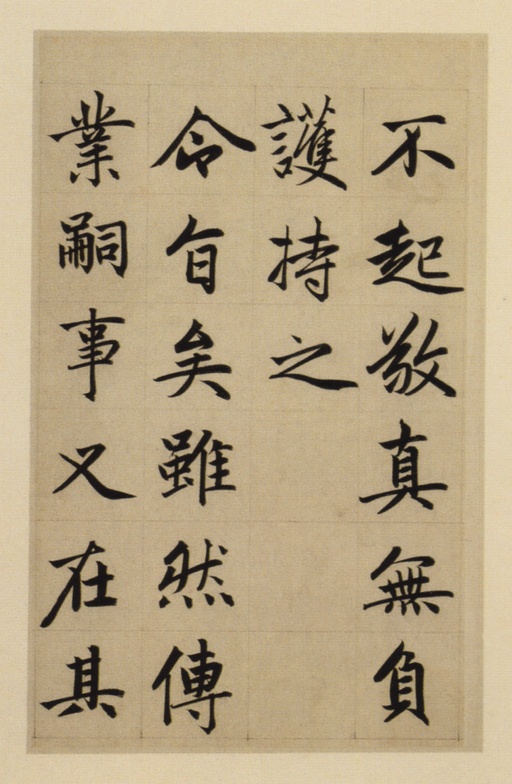 不起敬真無負
護持之
令旨矣雖然傳
業嗣事又在其